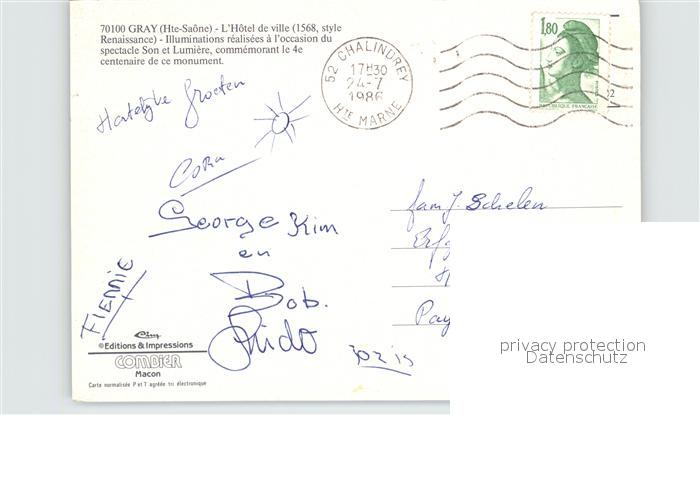 70100 GRAY (Hte-Saône) - L'Hôtel de ville (1568, style
Renaissance) - Illuminations réalisées à l'occasion du
spectacle Son et Lumière, commémorant le 4e
centenaire de ce monument.
52 CHALINDREY
17H30
24-7
1986
HTE MARNE
1,80
REPUBLIQUE FRANCAISE
Hartelijke Groeten
CORA
George Kim
en
Bob.
FIENNIE
Guido
Joris
fam J. Schelen
Pay
Cim
©Editions & Impressions
COMBIER
Macon
Carte normalisée P et T agréée tri électronique
privacy protection
Datenschutz